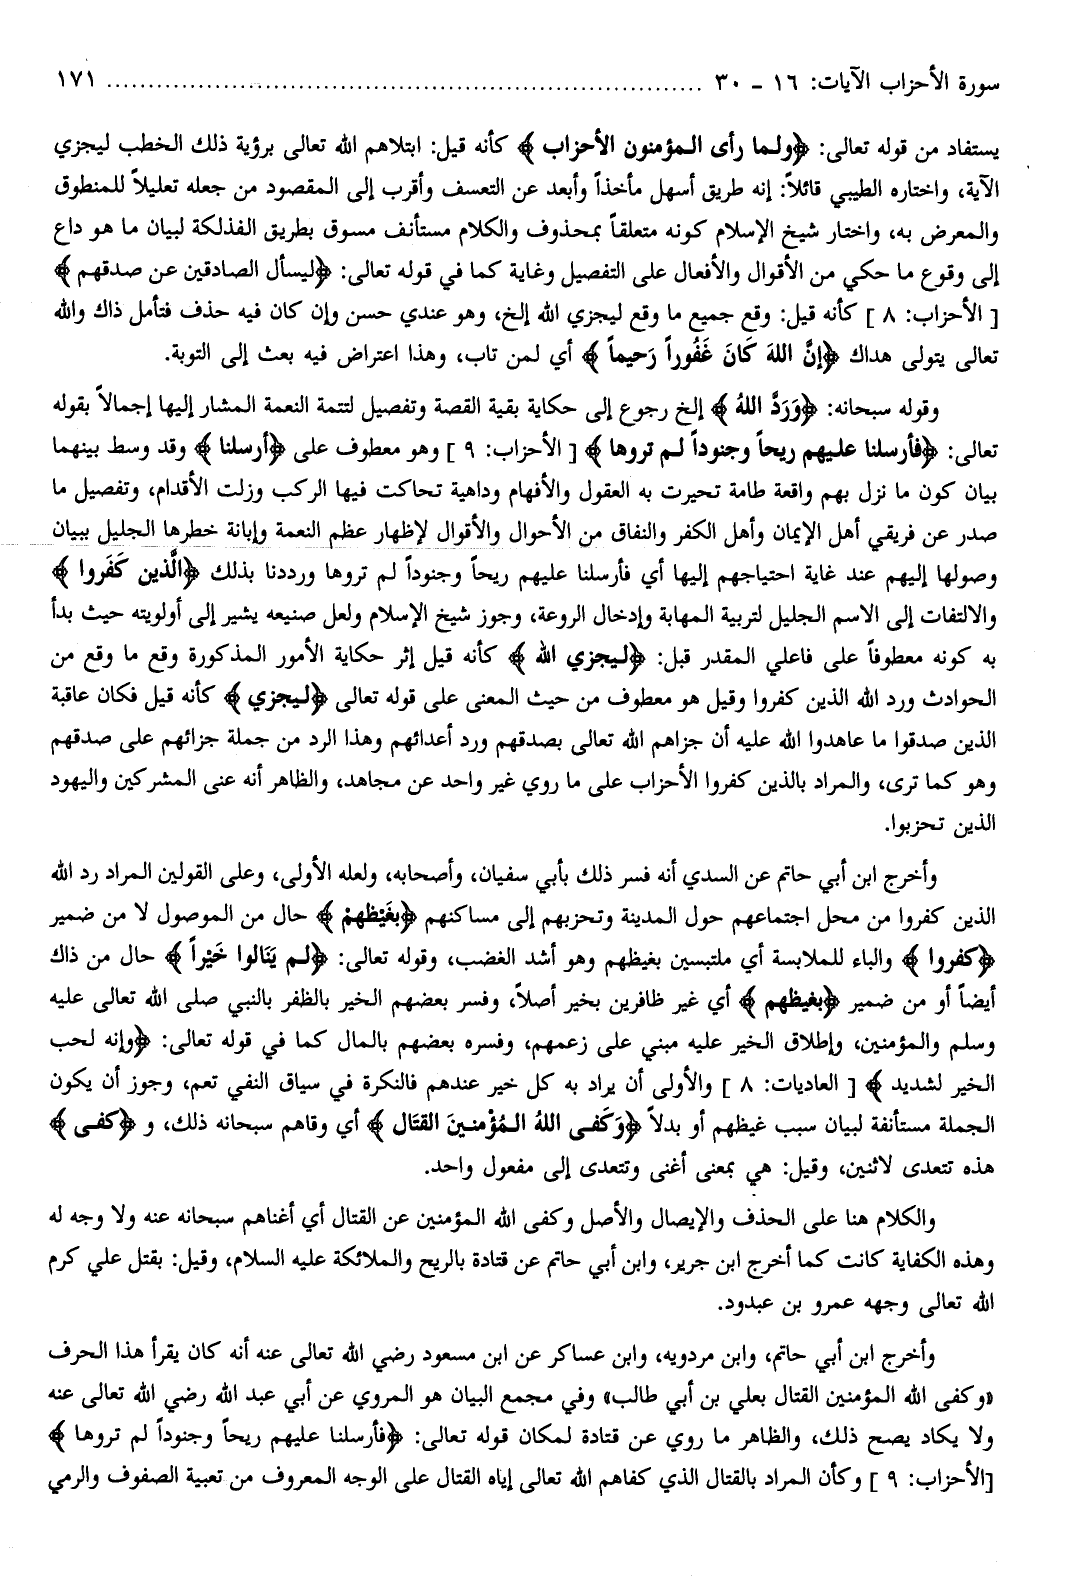 سورة الأحزاب الآيات: ١٦ ـ ٣٠ ........................................................................ ١٧١
يستفاد من قوله تعالى: ﴿ولما رأى المؤمنون الأحزاب﴾ كأنه قيل: ابتلاهم الله تعالى برؤية ذلك الخطب ليجزي
الآية، واختاره الطيبي قائلاً: إنه طريق أسهل مأخذاً وأبعد عن التعسف وأقرب إلى المقصود من جعله تعليلاً للمنطوق
والمعرض به، واختار شيخ الإسلام كونه متعلقاً بمحذوف والكلام مستأنف مسوق بطريق الفذلكة لبيان ما هو داع
إلى وقوع ما حكي من الأقوال والأفعال على التفصيل وغاية كما في قوله تعالى: ﴿ليسأل الصادقين عن صدقهم﴾
[ الأحزاب: ٨ ] كأنه قيل: وقع جميع ما وقع ليجزي الله إلخ، وهو عندي حسن وإن كان فيه حذف فتأمل ذاك والله
تعالى يتولى هداك ﴿إنَّ اللهَ كَانَ غَفُوراً رَحيماً﴾ أي لمن تاب، وهذا اعتراض فيه بعث إلى التوبة.
وقوله سبحانه: ﴿وَرَدَّ اللهُ﴾ إلخ رجوع إلى حكاية بقية القصة وتفصيل لتتمة النعمة المشار إليها إجمالاً بقوله
تعالى: ﴿فأرسلنا عليهم ريحاً وجنوداً لم تروها﴾ [ الأحزاب: ٩ ] وهو معطوف على ﴿أرسلنا﴾ وقد وسط بينهما
بيان كون ما نزل بهم واقعة طامة تحيرت به العقول والأفهام وداهية تحاكت فيها الركب وزلت الأقدام، وتفصيل ما
صدر عن فريقي أهل الإيمان وأهل الكفر والنفاق من الأحوال والأقوال لإظهار عظم النعمة وإبانة خطرها الجليل ببيان
وصولها إليهم عند غاية احتياجهم إليها أي فأرسلنا عليهم ريحاً وجنوداً لم تروها ورددنا بذلك ﴿الَّذين كَفَروا﴾
والالتفات إلى الاسم الجليل لتربية المهابة وإدخال الروعة، وجوز شيخ الإسلام ولعل صنيعه يشير إلى أولويته حيث بدأ
به كونه معطوفاً على فاعلي المقدر قبل: ﴿ليجزي الله﴾ كأنه قيل إثر حكاية الأمور المذكورة وقع ما وقع من
الحوادث ورد الله الذين كفروا وقيل هو معطوف من حيث المعنى على قوله تعالى ﴿ليجزي﴾ كأنه قيل فكان عاقبة
الذين صدقوا ما عاهدوا الله عليه أن جزاهم الله تعالى بصدقهم ورد أعدائهم وهذا الرد من جملة جزائهم على صدقهم
وهو كما ترى، والمراد بالذين كفروا الأحزاب على ما روي غير واحد عن مجاهد، والظاهر أنه عنى المشركين واليهود
الذين تحزبوا.
وأخرج ابن أبي حاتم عن السدي أنه فسر ذلك بأبي سفيان، وأصحابه، ولعله الأولى، وعلى القولين المراد رد الله
الذين كفروا من محل اجتماعهم حول المدينة وتحزبهم إلى مساكنهم ﴿بغَيْظهمْ﴾ حال من الموصول لا من ضمير
﴿كفروا﴾ والباء للملابسة أي ملتبسين بغيظهم وهو أشد الغضب، وقوله تعالى: ﴿لم يَنَالوا خَيْراً﴾ حال من ذاك
أيضاً أو من ضمير ﴿بغيظهم﴾ أي غير ظافرين بخير أصلاً، وفسر بعضهم الخير بالظفر بالنبي صلى الله تعالى عليه
وسلم والمؤمنين، وإطلاق الخير عليه مبني على زعمهم، وفسره بعضهم بالمال كما في قوله تعالى: ﴿وإنه لحب
الخير لشديد﴾ [ العاديات: ٨ ] والأولى أن يراد به كل خير عندهم فالنكرة في سياق النفي تعم، وجوز أن يكون
الجملة مستأنفة لبيان سبب غيظهم أو بدلاً ﴿وَكَفى اللهُ المُؤْمنينَ القتَال﴾ أي وقاهم سبحانه ذلك، و ﴿كفى﴾
هذه تتعدى لاثنين، وقيل: هي بمعنى أغنى وتتعدى إلى مفعول واحد.
والكلام هنا على الحذف والإيصال والأصل وكفى الله المؤمنين عن القتال أي أغناهم سبحانه عنه ولا وجه له
وهذه الكفاية كانت كما أخرج ابن جرير، وابن أبي حاتم عن قتادة بالريح والملائكة عليه السلام، وقيل: بقتل علي كرم
الله تعالى وجهه عمرو بن عبدود.
وأخرج ابن أبي حاتم، وابن مردويه، وابن عساكر عن ابن مسعود رضي الله تعالى عنه أنه كان يقرأ هذا الحرف
«وكفى الله المؤمنين القتال بعلي بن أبي طالب» وفي مجمع البيان هو المروي عن أبي عبد الله رضي الله تعالى عنه
ولا يكاد يصح ذلك، والظاهر ما روي عن قتادة لمكان قوله تعالى: ﴿فأرسلنا عليهم ريحاً وجنوداً لم تروها﴾
[الأحزاب: ٩ ] وكأن المراد بالقتال الذي كفاهم الله تعالى إياه القتال على الوجه المعروف من تعبية الصفوف والرمي